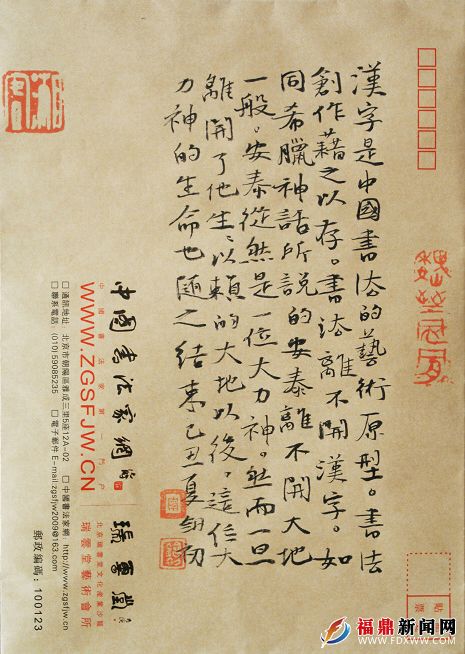 漢字是中國書法的藝術原型。書法
創作藉之以存。書法離不開漢字。如
同希臘神話所說的安泰離不開大地
一般。安泰從然是一位大力神。然而一旦
離開了他生:以賴的大地以後。這位大
力神的生命也隨之结束己丑夏
中國書法家網
中國書法家第一門户
WWW.ZGSFJW.CN
瑞雲堂
瑞雲堂藝術會所
□ 通訊地址 北京市朝陽區雅成三里5座12A-02 □ 中國書法家網:http://www.zgsfjw.cn
□ 聯系電話 (010)59085235 □ 電子郵件E-mail:zgsfjw2009@163.com
郵政編碼:100123
貼
票
福鼎新闻网
WWW.FDXWW.COM